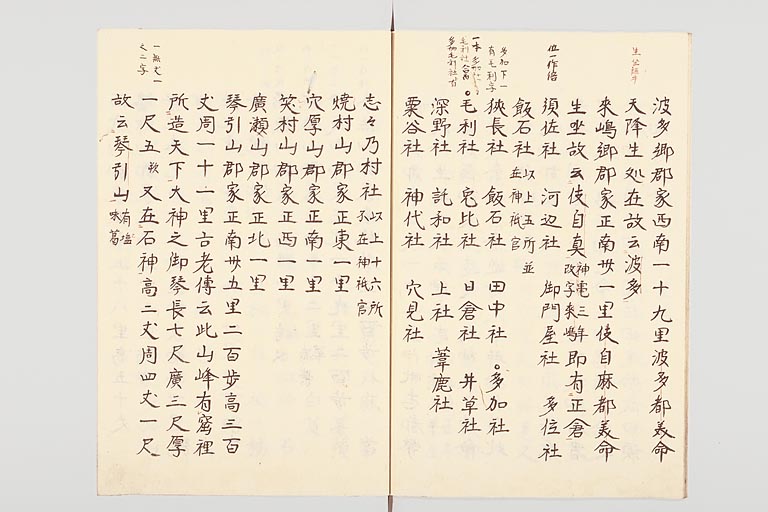 波多郷郡家西南一十九里波多都美命
天降生処在故云波多
来嶋郷郡家正南卅一里使自麻都美命
生坐故云使自真神亀三年改字来嶋即有正倉
須佐社 河辺社 御門屋社 多位社
飯石社以上五所並在神祇官
狭長社 飯石社 田中社 多加社
毛利社 兎比社 日倉社 井草社
深野社 託和社 上社 葦鹿社
粟谷社 神代社 穴見社
志々乃村社以上十六所不在神祇官
焼村山郡家正東一里
穴厚山郡家正南一里
笶村山郡家正西一里
廣瀬山郡家正北一里
琴引山郡家正南卅五里二百歩高三百
丈周一十一里古老傳云此山峰有窟裡
所造天下大神之御琴長七尺廣三尺厚
一尺五歟又在石神高二丈周四丈一尺
故云琴引山有塩味葛
位一作倍
多加下一
有毛利字